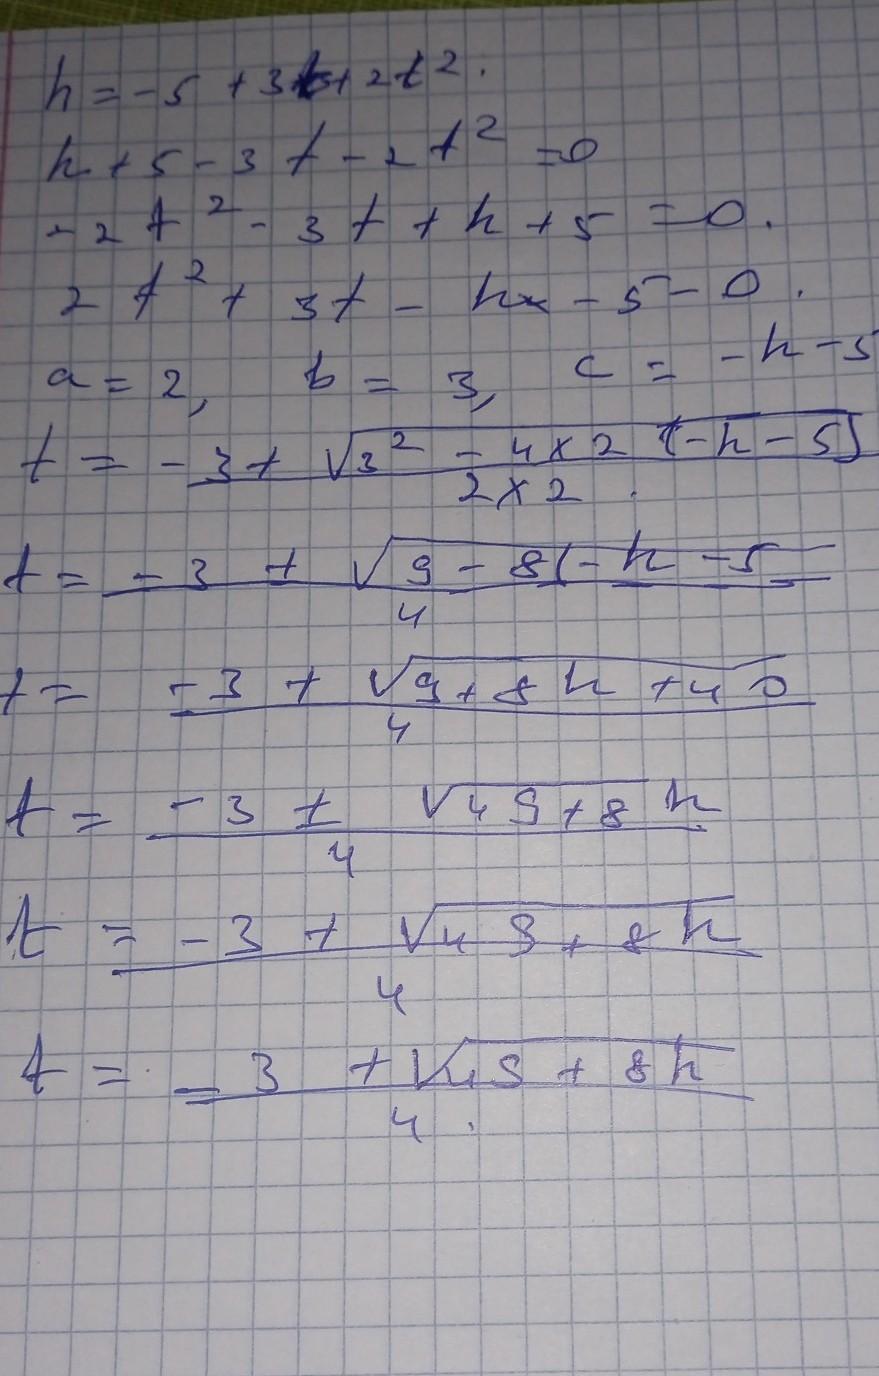 h = -5 + 3t + 2t².
h + 5 - 3t - 2t² = 0
- 2t² - 3t + h + 5 = 0.
2t² + 3t - h - 5 - 0.
a = 2, b = 3, c = -h - 5
t = -3 + √3² - 4 × 2 (-h - 5) / 2 × 2 .
t = -3 + √9 - 8(-h - 5 / 4
t = -3 + √9 + 8h + 40 / 4
t = -3 ± √49 + 8h / 4
t = -3 + √49 + 8h / 4
t = -3 + √49 + 8h / 4 .